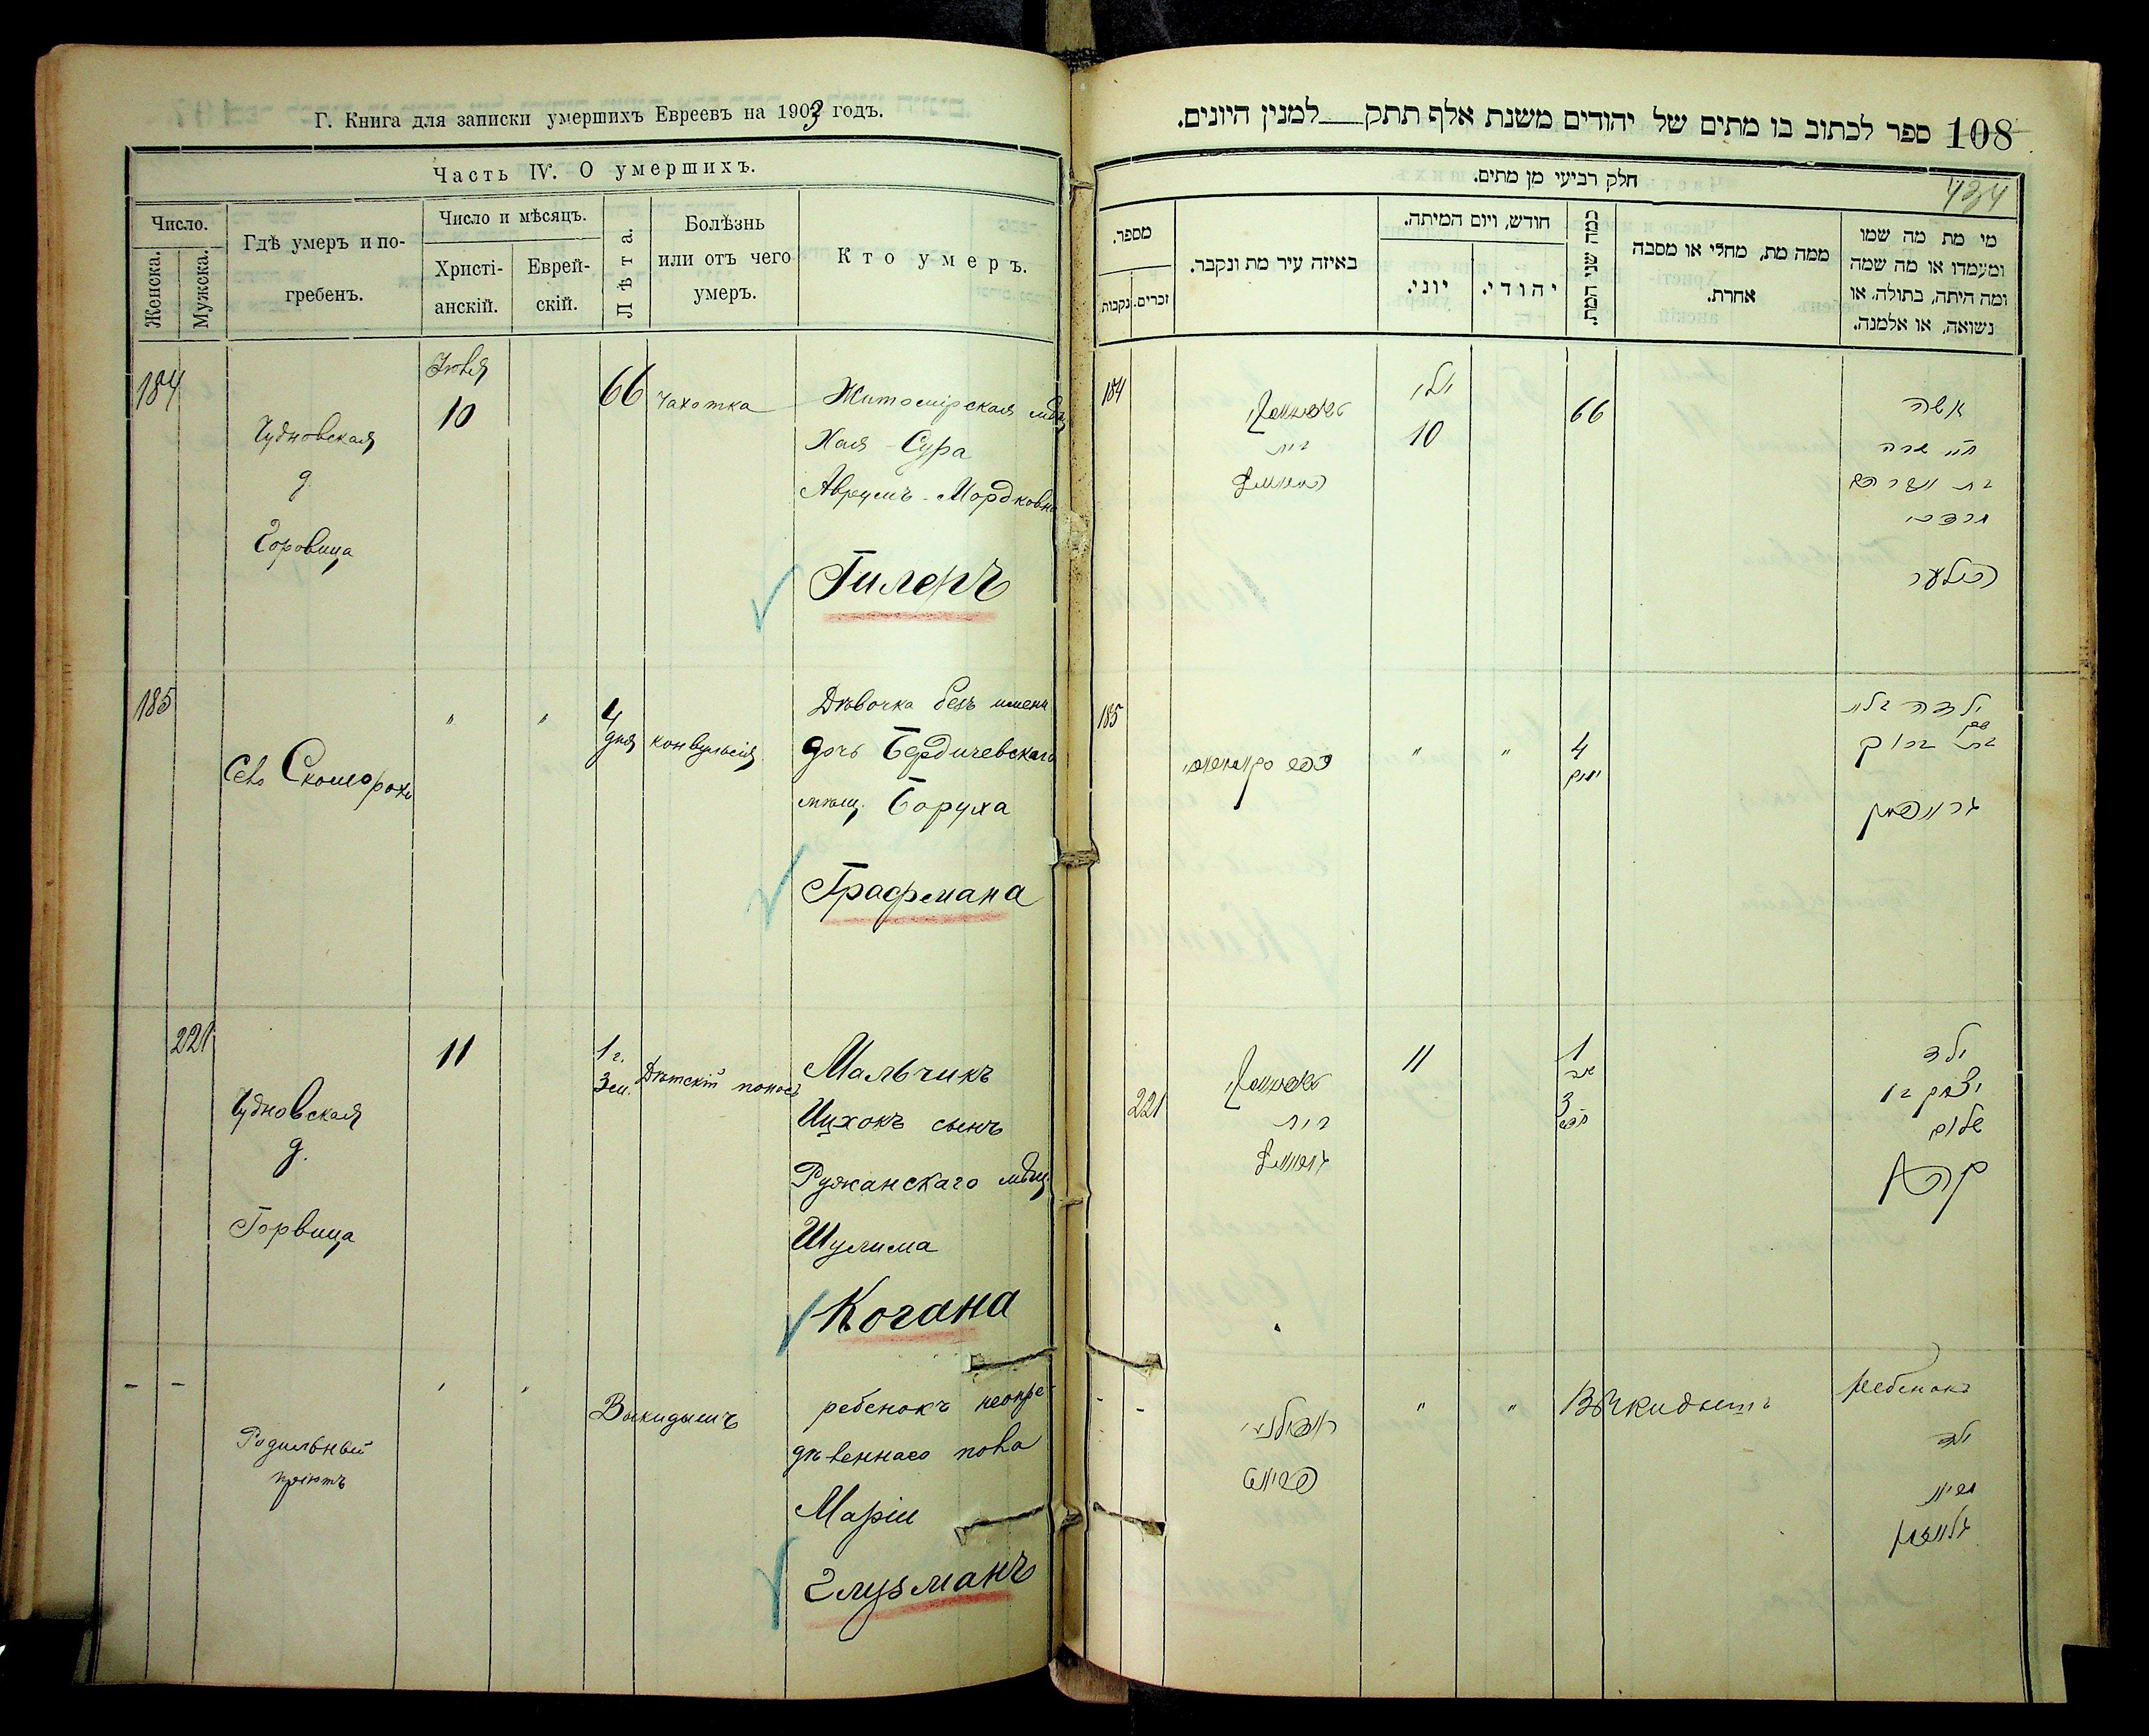 Г. Книга для записки умершихъ Евреевъ на 1903 годъ.
Часть IV. О умершихъ.
Число.
Женска.
Мужска.
Гдѣ умеръ и по-
гребенъ.
Число и мѣсяцъ.
Христі-
анскій.
Еврей-
скій.
Лѣта.
Болѣзнь
или отъ чего
умеръ.
Кто умеръ.
184
Чудновская
д.
Горовица
Іюля
10
66
Чахотка
Житомірская мѣщ
Хая-Сура
Аврумъ-Мордковна
Гилеръ
185
Село Скоморохи
"
"
4
дня
конвульсія
Дѣвочка безъ имени
дочь Бердичевскаго
мѣщ. Боруха
Графмана
221
Чудновская
д.
Горвица
11
1 г.
3 м.
Дѣтскій поносъ
Мальчикъ
Ицхокъ сынъ
Ружанскаго мѣщ
Шулима
Когана
-
-
Родильный
пріютъ
"
"
Выкидышъ
ребенокъ неопре-
дѣленнаго пола
Маріи
Глузманъ
108 ספר לכתוב בו מתים של יהודים משנת אלף תתק למנין היונים.
434
חלק רביעי מן מתים.
מספר.
זכרים.
נקבות
באיזה עיר מת ונקבר.
חודש, ויום המיתה.
יוני.
יהודי.
כמה שני המת.
ממה מת, מחלי או מסבה
אחרת.
מי מת מה שמו
ומעמדו או מה שמה
ומה היתה, בתולה, או
נשואה, או אלמנה.
184
בית
יולי
10
66
אשה
חי' שרה
בת אברהם
מרדכי
הילער
185
"
"
4
ימים
ילדה בלי
שם
בת ברוך
גראפמאן
221
בית
11
1
שנה
3
חדש
ילד
יצחק בן
שלום
כהן
-
-
"
"
Выкидышъ
ребенокъ
ילד
גלוזמאן